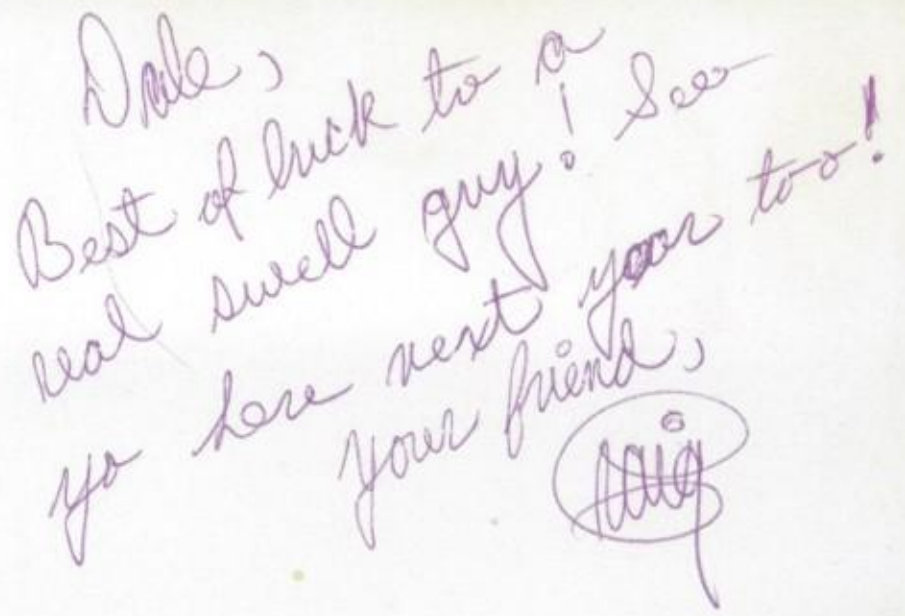 Dale,
Best of luck to a
real swell guy! See
ya here next year too!
Your friend,
Craig